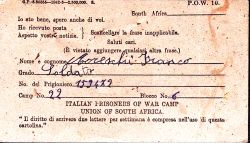 P.O.W. 10.
South Africa
Io sto bene, spero anche di voi.
Ho ricevuto posta
Aspetto vostre notizie.
Scancellare la frase inapplicabile.
Saluti cari.
(È vietato aggiungere qualsiasi altra frase.)
Nome e cognome Franco
Grado Soldato
No. del Prigioniero
Camp No. 22 Blocco No. 6
ITALIAN PRISONERS OF WAR CAMP
UNION OF SOUTH AFRICA.
"Il diritto di scrivere due lettere per settimana è compreso nell'uso di questa
cartolina."